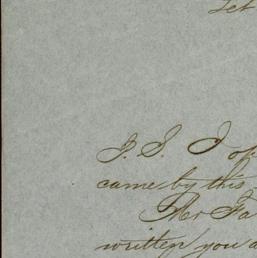 Let
P. S. I of
came by this
Mr Fa
written you a